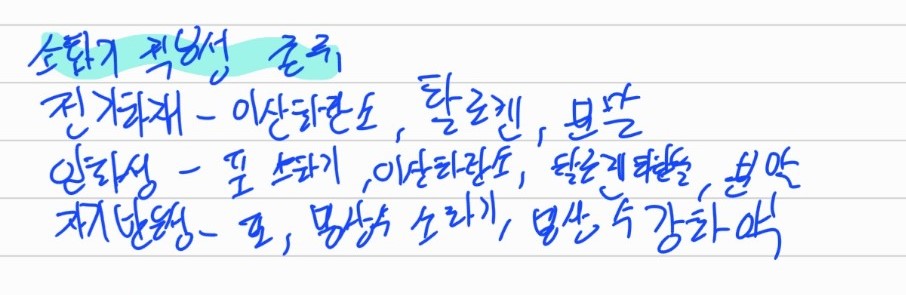 소화기 적응성 종류
전기화재 - 이산화탄소, 할로겐, 분말
인화성 - 포 소화기, 이산화탄소, 할로겐화합물, 분말
자기반응성 - 포, 봉상수 소화기, 무상수 강화액